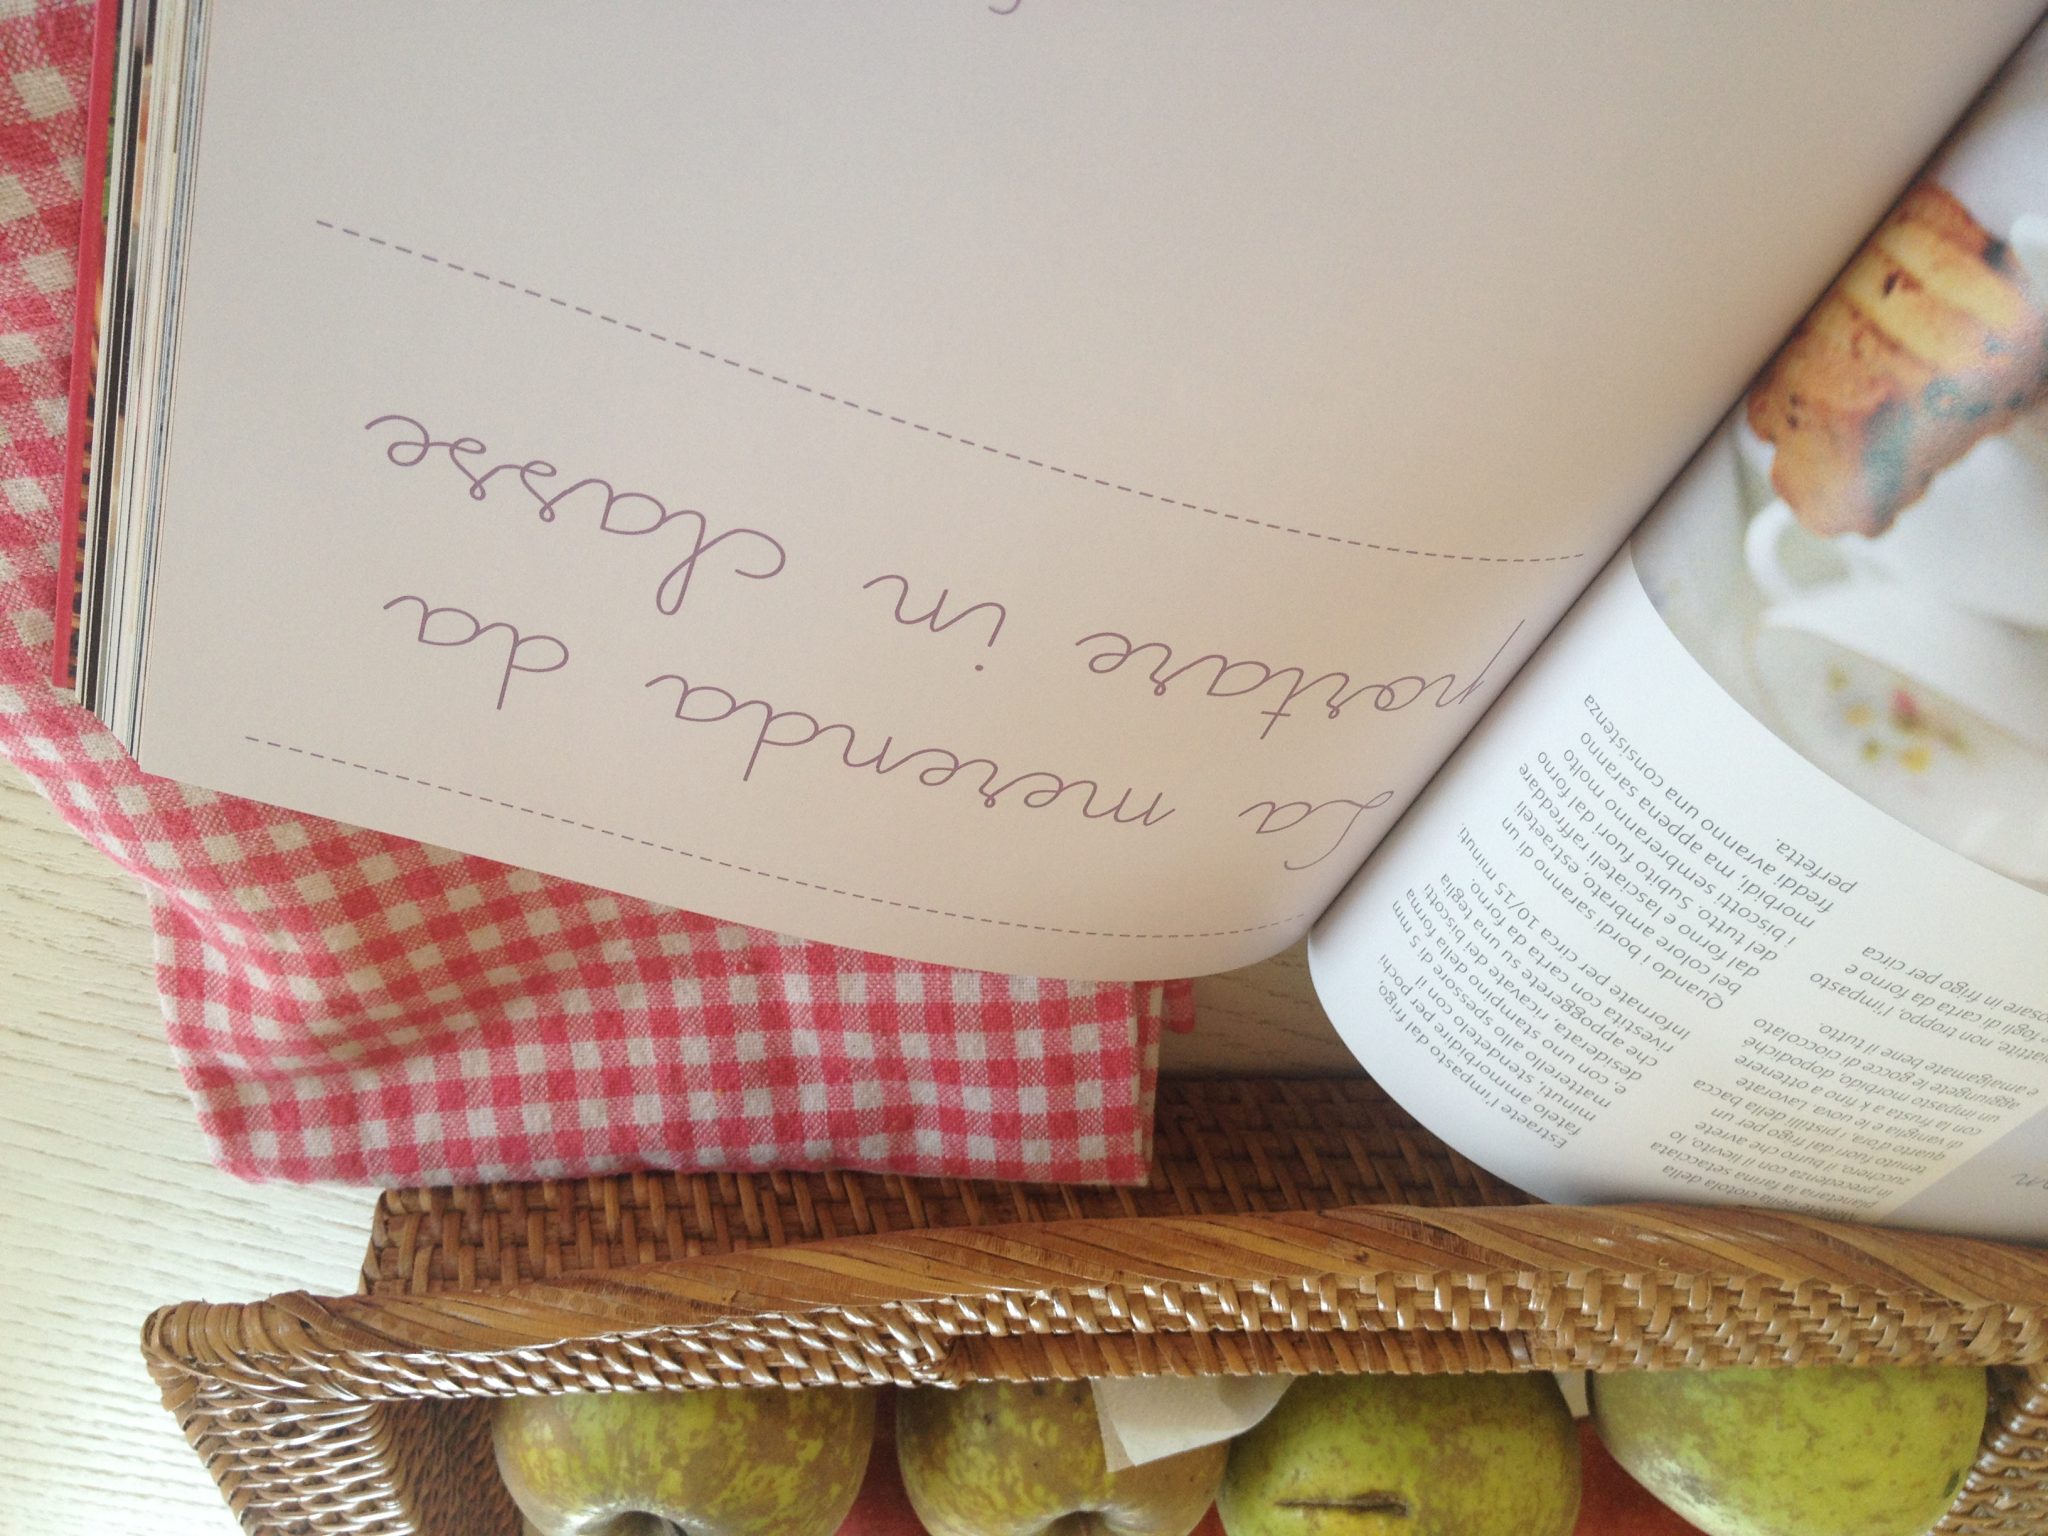 La merenda da
portare in classe
Estraete l'impasto dal frigo,
fatelo ammorbidire per pochi
minuti, stendetelo con il
matterello allo spessore di 5 mm
e, con uno stampino della forma
desiderata, ricavate dei biscotti
che appoggerete su una teglia
rivestita con carta da forno.
Infornate per circa 10/15 minuti.
Quando i bordi saranno di un
bel colore ambrato, estraeteli
dal forno e lasciateli raffreddare
del tutto. Subito fuori dal forno
i biscotti sembreranno molto
morbidi, ma appena saranno
freddi avranno una consistenza
perfetta.
nella ciotola della
planetaria la farina setacciata
in precedenza con il lievito, lo
zucchero, il burro che avrete
tenuto fuori dal frigo per un
quarto d'ora, i pistilli della bacca
di vaniglia e le uova. Lavorate
con la frusta a k fino a ottenere
un impasto morbido, dopodiché
aggiungete le gocce di cioccolato
e amalgamate bene il tutto.
non troppo, l'impasto
fogli di carta da forno e
in frigo per circa